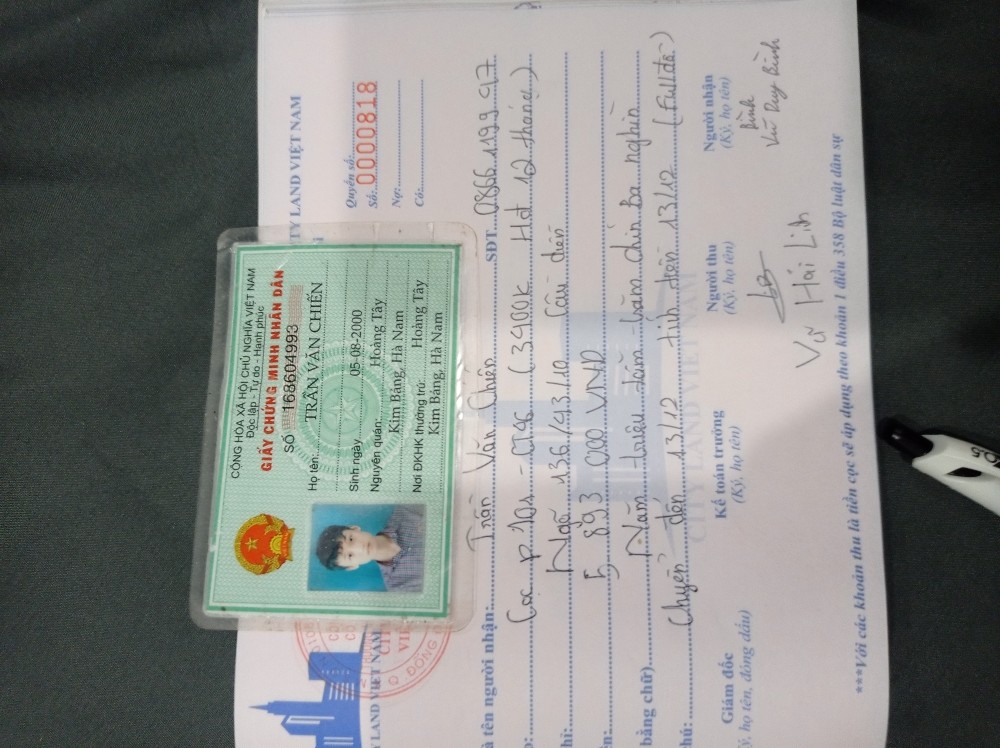 CỘNG HÒA XÃ HỘI CHỦ NGHĨA VIỆT NAM
Độc lập - Tự do - Hạnh phúc
GIẤY CHỨNG MINH NHÂN DÂN
SỐ 168604993
Họ tên: TRẦN VĂN CHIẾN
Sinh ngày 05-08-2000
Nguyên quán: Hoàng Tây
Kim Bảng, Hà Nam
Nơi ĐKHK thường trú: Hoàng Tây
Kim Bảng, Hà Nam
TY LAND VIỆT NAM
Quyển số:
Số: 0000818
Nợ:
Có:
LAND VIỆT NAM
à tên người nhận: Trần Văn Chiến SĐT 0866 199 917
Cọc (3400k Hđ 12 tháng)
hỉ: Ngõ 136/43/10 Cầu diễn
5 893 000 VNĐ
bằng chữ) Năm triệu tám trăm chín Ba nghìn
hú: Chuyển đến 13/12 tính tiền 13/12 (Full đồ)
CITY LAND VIỆT NAM
Giám đốc
ý, họ tên, đóng dấu)
Kế toán trưởng
(Ký, họ tên)
Người thu
(Ký, họ tên)
Vũ Hải Linh
Người nhận
(Ký, họ tên)
Bình
Vũ Duy Bình
***Với các khoản thu là tiền cọc sẽ áp dụng theo khoản 1 điều 358 Bộ luật dân sự